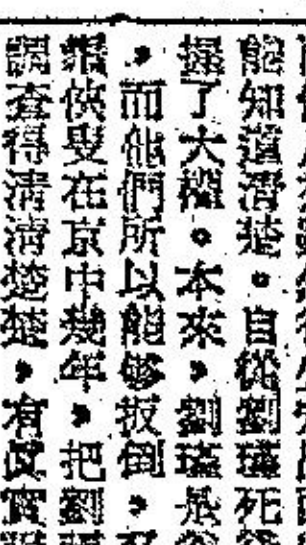 能知道清楚。自從劉瑾死
握了大權。本來,劉瑾是
,而他們所以能够扳倒,
俠叟在京中幾年,把劉
調查得清清楚楚,有